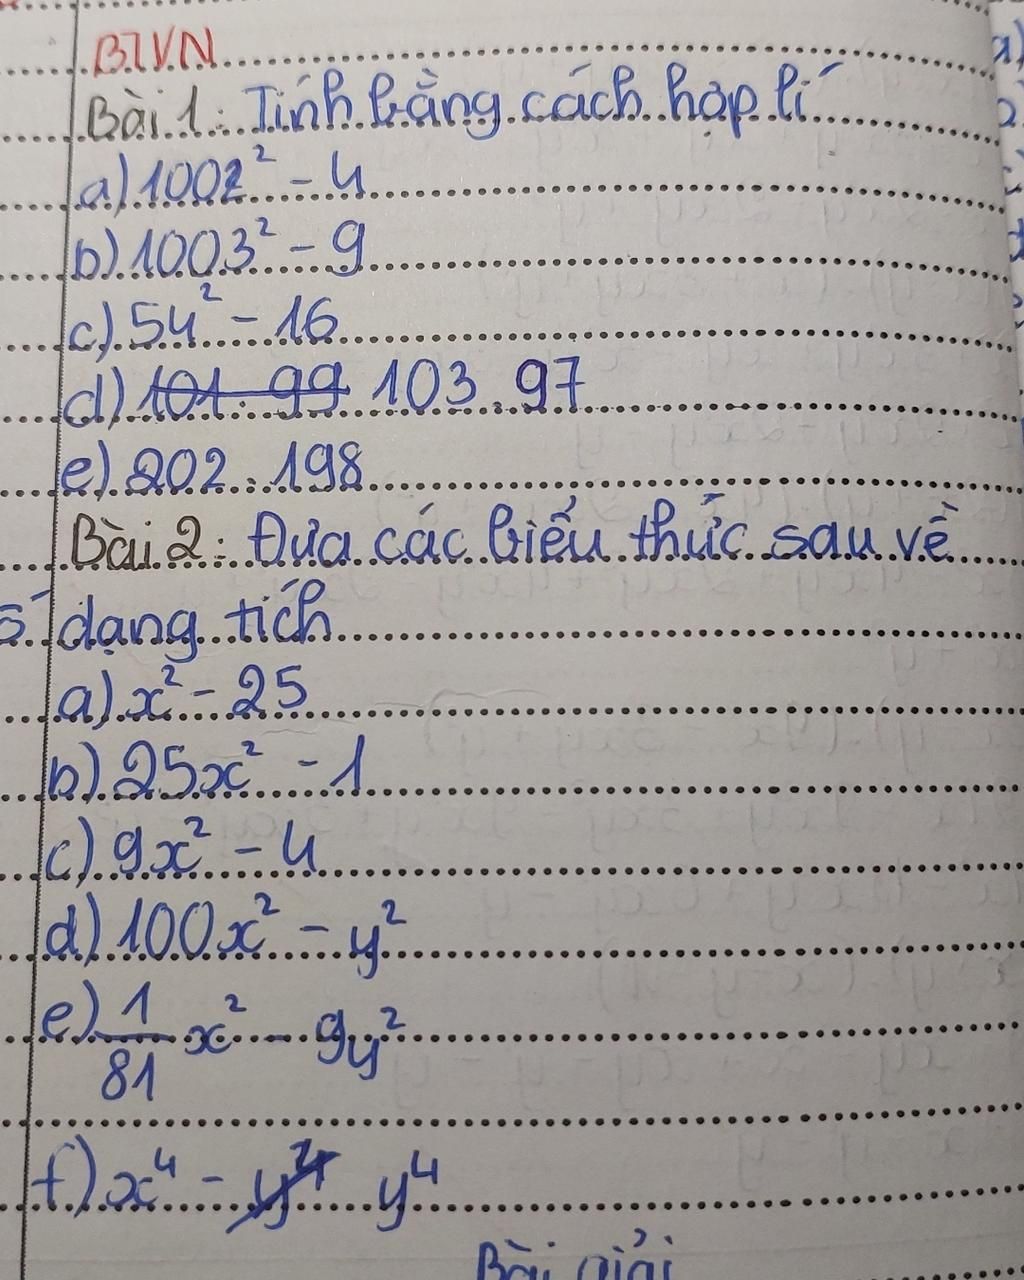 BTVN
Bài 1: Tính bằng cách hợp lí
a) 1002² - 4
b) 1003² - 9
c) 54² - 16
d) 101.99 103.97
e) 202.198
Bài 2: Đưa các biểu thức sau về
dạng tích
a) x² - 25
b) 25x² - 1
c) 9x² - 4
d) 100x² - y²
e) 1/81 x² - 9y²
f) x⁴ - y⁴
Bài giải